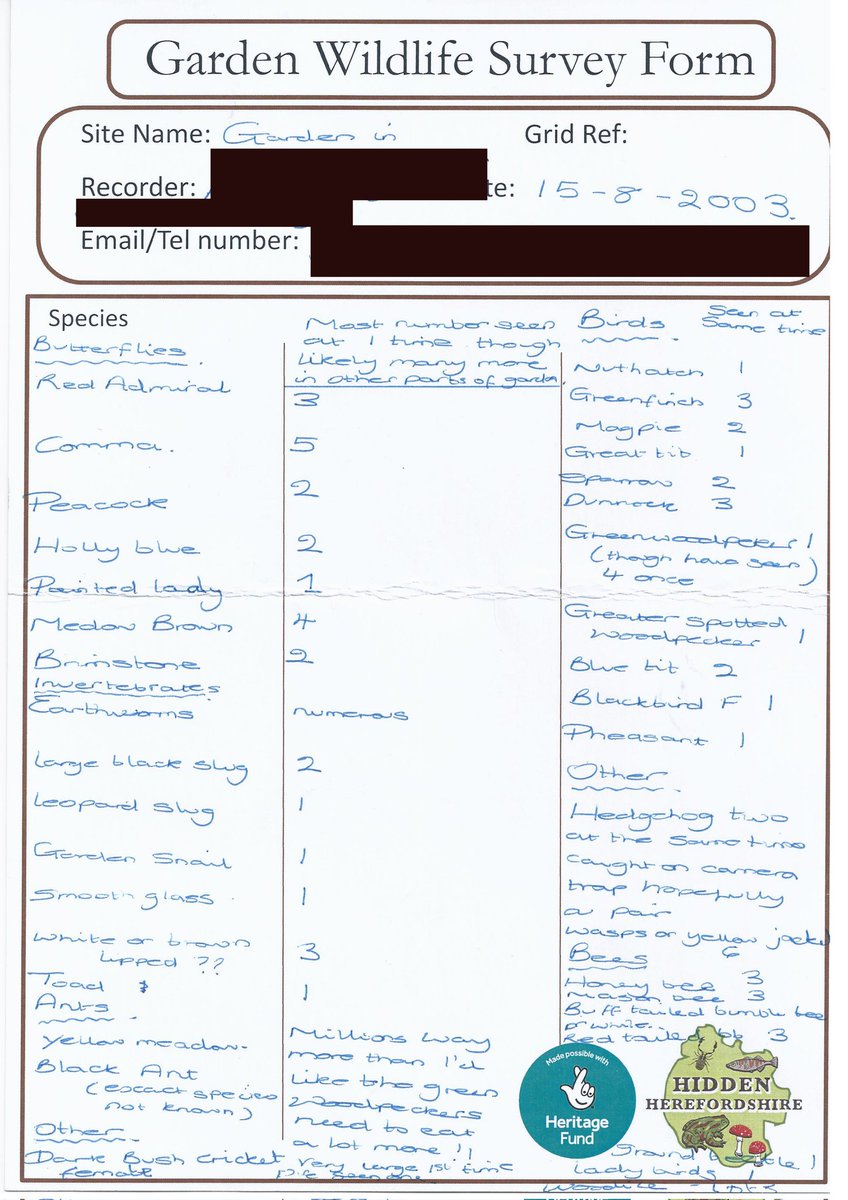 Garden Wildlife Survey Form
Site Name: Garden in
Grid Ref:
Recorder:
te: 15-8-2003.
Email/Tel number:
Species
Most number seen
at 1 time though
likely many more
in other parts of garden.
Butterflies
Red Admiral 3
Comma. 5
Peacock 2
Holly blue 2
Painted lady 1
Medow Brown 4
Brimstone 2
Invertebrates
Earthworms numerous
large black slug 2
leopard slug 1
Garden Snail 1
Smooth glass 1
White or brown
lipped ?? 3
Toad 1
Ants
yellow meadow.
Black Ant
(exact species
not known)
Millions way
more than I'd
like the green
woodpeckers
need to eat
a lot more !!
Other
Dark Bush cricket very large 1st time
female seen one
Birds Seen at
Same time
Nuthatch 1
Greenfinch 3
Magpie 2
Great tit 1
Sparrow 2
Dunnock 3
Greenwoodpecker 1
(though have seen)
4 once
Greater spotted
woodpecker 1
Blue tit 2
Blackbird F 1
Pheasant 1
Other
Hedgehog two
at the same time
caught on camera
trap hopefully
a pair
wasps or yellow jacket
6
Bees
Honey bee 3
mason bee 3
Buff tailed bumble bee
or white.
Red tailed bb 3
Made possible with
Heritage
Fund
HIDDEN
HEREFORDSHIRE
Ground beetle 1
Lady birds 1
Woodlice